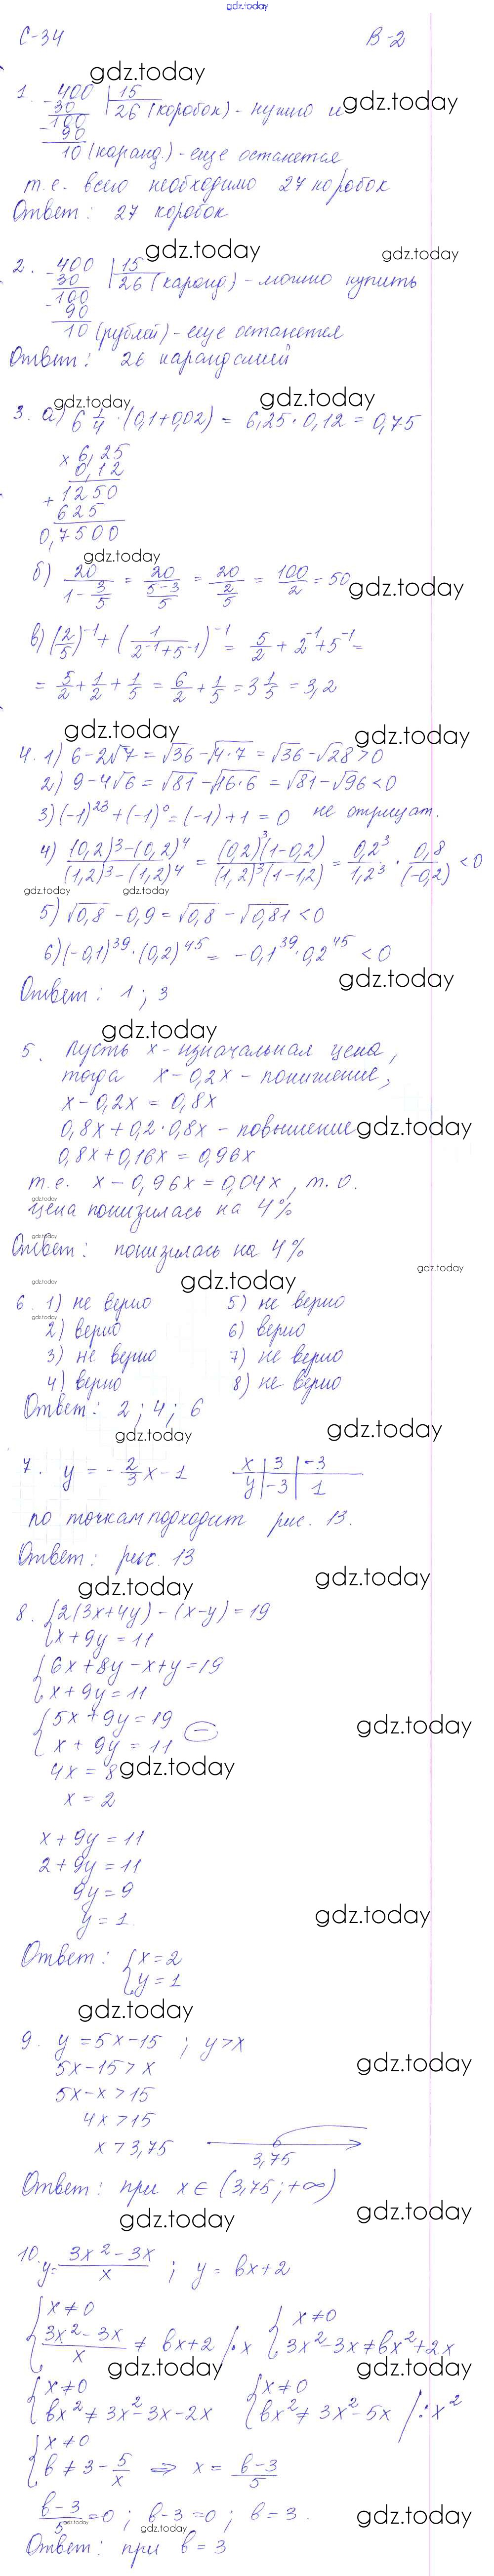 gdz.today
С-34 В-2
gdz.today
1. 400 | 15
30 26 (коробок) - нужно и gdz.today
100
90
10 (каранд.) - еще останется
т.е. всего необходимо 27 коробок
Ответ: 27 коробок
gdz.today gdz.today
2. 400 | 15
30 26 (каранд.) - можно купить
100
90
10 (рублей) - еще останется
Ответ: 26 карандашей
gdz.today gdz.today
3. а) 6 1/4 · (0,1+0,02) = 6,25 · 0,12 = 0,75
× 6,25
0,12
+ 1250
625
0,7500
gdz.today
б) 20/(1 - 3/5) = 20/((5-3)/5) = 20/(2/5) = 100/2 = 50 gdz.today
в) (2/5)^-1 + (1/(2^-1+5^-1))^-1 = 5/2 + 2^-1 + 5^-1 =
= 5/2 + 1/2 + 1/5 = 6/2 + 1/5 = 3 1/5 = 3,2
gdz.today gdz.today
4. 1) 6-2√7 = √36 - √4·7 = √36 - √28 > 0
2) 9-4√6 = √81 - √16·6 = √81 - √96 < 0
3) (-1)^23 + (-1)^0 = (-1) + 1 = 0 не отрицат.
4) ((0,2)^3 - (0,2)^4)/((1,2)^3 - (1,2)^4) = ((0,2)^3(1-0,2))/((1,2)^3(1-1,2)) = 0,2^3/1,2^3 · 0,8/(-0,2) < 0
gdz.today gdz.today
5) √0,8 - 0,9 = √0,8 - √0,81 < 0
6) (-0,1)^39 · (0,2)^45 = -0,1^39 · 0,2^45 < 0
gdz.today
Ответ: 1; 3
gdz.today
5. Пусть x - изначальная цена,
тогда x - 0,2x - понижение,
x - 0,2x = 0,8x
0,8x + 0,2·0,8x - повышение gdz.today
0,8x + 0,16x = 0,96x
т.е. x - 0,96x = 0,04x, т.о.
gdz.today
цена понизилась на 4%
gdz.today
Ответ: понизилась на 4%
gdz.today
gdz.today gdz.today
6. 1) не верно 5) не верно
gdz.today
2) верно 6) верно
3) не верно 7) не верно
4) верно 8) не верно
Ответ: 2; 4; 6
gdz.today gdz.today
7. y = -2/3 x - 1 x | 3 | -3
y | -3 | 1
по точкам подходит рис. 13.
Ответ: рис. 13
gdz.today gdz.today
8. {2(3x+4y) - (x-y) = 19
{x+9y = 11
{6x+8y-x+y = 19
{x+9y = 11
{5x+9y = 19
(-) gdz.today
{x+9y = 11
4x = 8 gdz.today
x = 2
x+9y = 11
2+9y = 11
9y = 9
y = 1. gdz.today
Ответ: {x = 2
{y = 1
gdz.today
9. y = 5x-15 ; y > x
5x-15 > x gdz.today
5x-x > 15
4x > 15
x > 3,75 3,75
Ответ: при x ∈ (3,75; +∞)
gdz.today gdz.today
10. y = (3x^2-3x)/x ; y = bx+2
{x ≠ 0 {x ≠ 0
{(3x^2-3x)/x ≠ bx+2 |·x {3x^2-3x ≠ bx^2+2x
gdz.today gdz.today
{x ≠ 0 {x ≠ 0
{bx^2 ≠ 3x^2-3x-2x {bx^2 ≠ 3x^2-5x |:x^2
{x ≠ 0
{b ≠ 3 - 5/x ⇒ x = (b-3)/5
(b-3)/5 = 0 ; b-3 = 0 ; b = 3. gdz.today
gdz.today gdz.today
Ответ: при b = 3